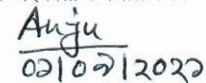 Anju
02|09|2022